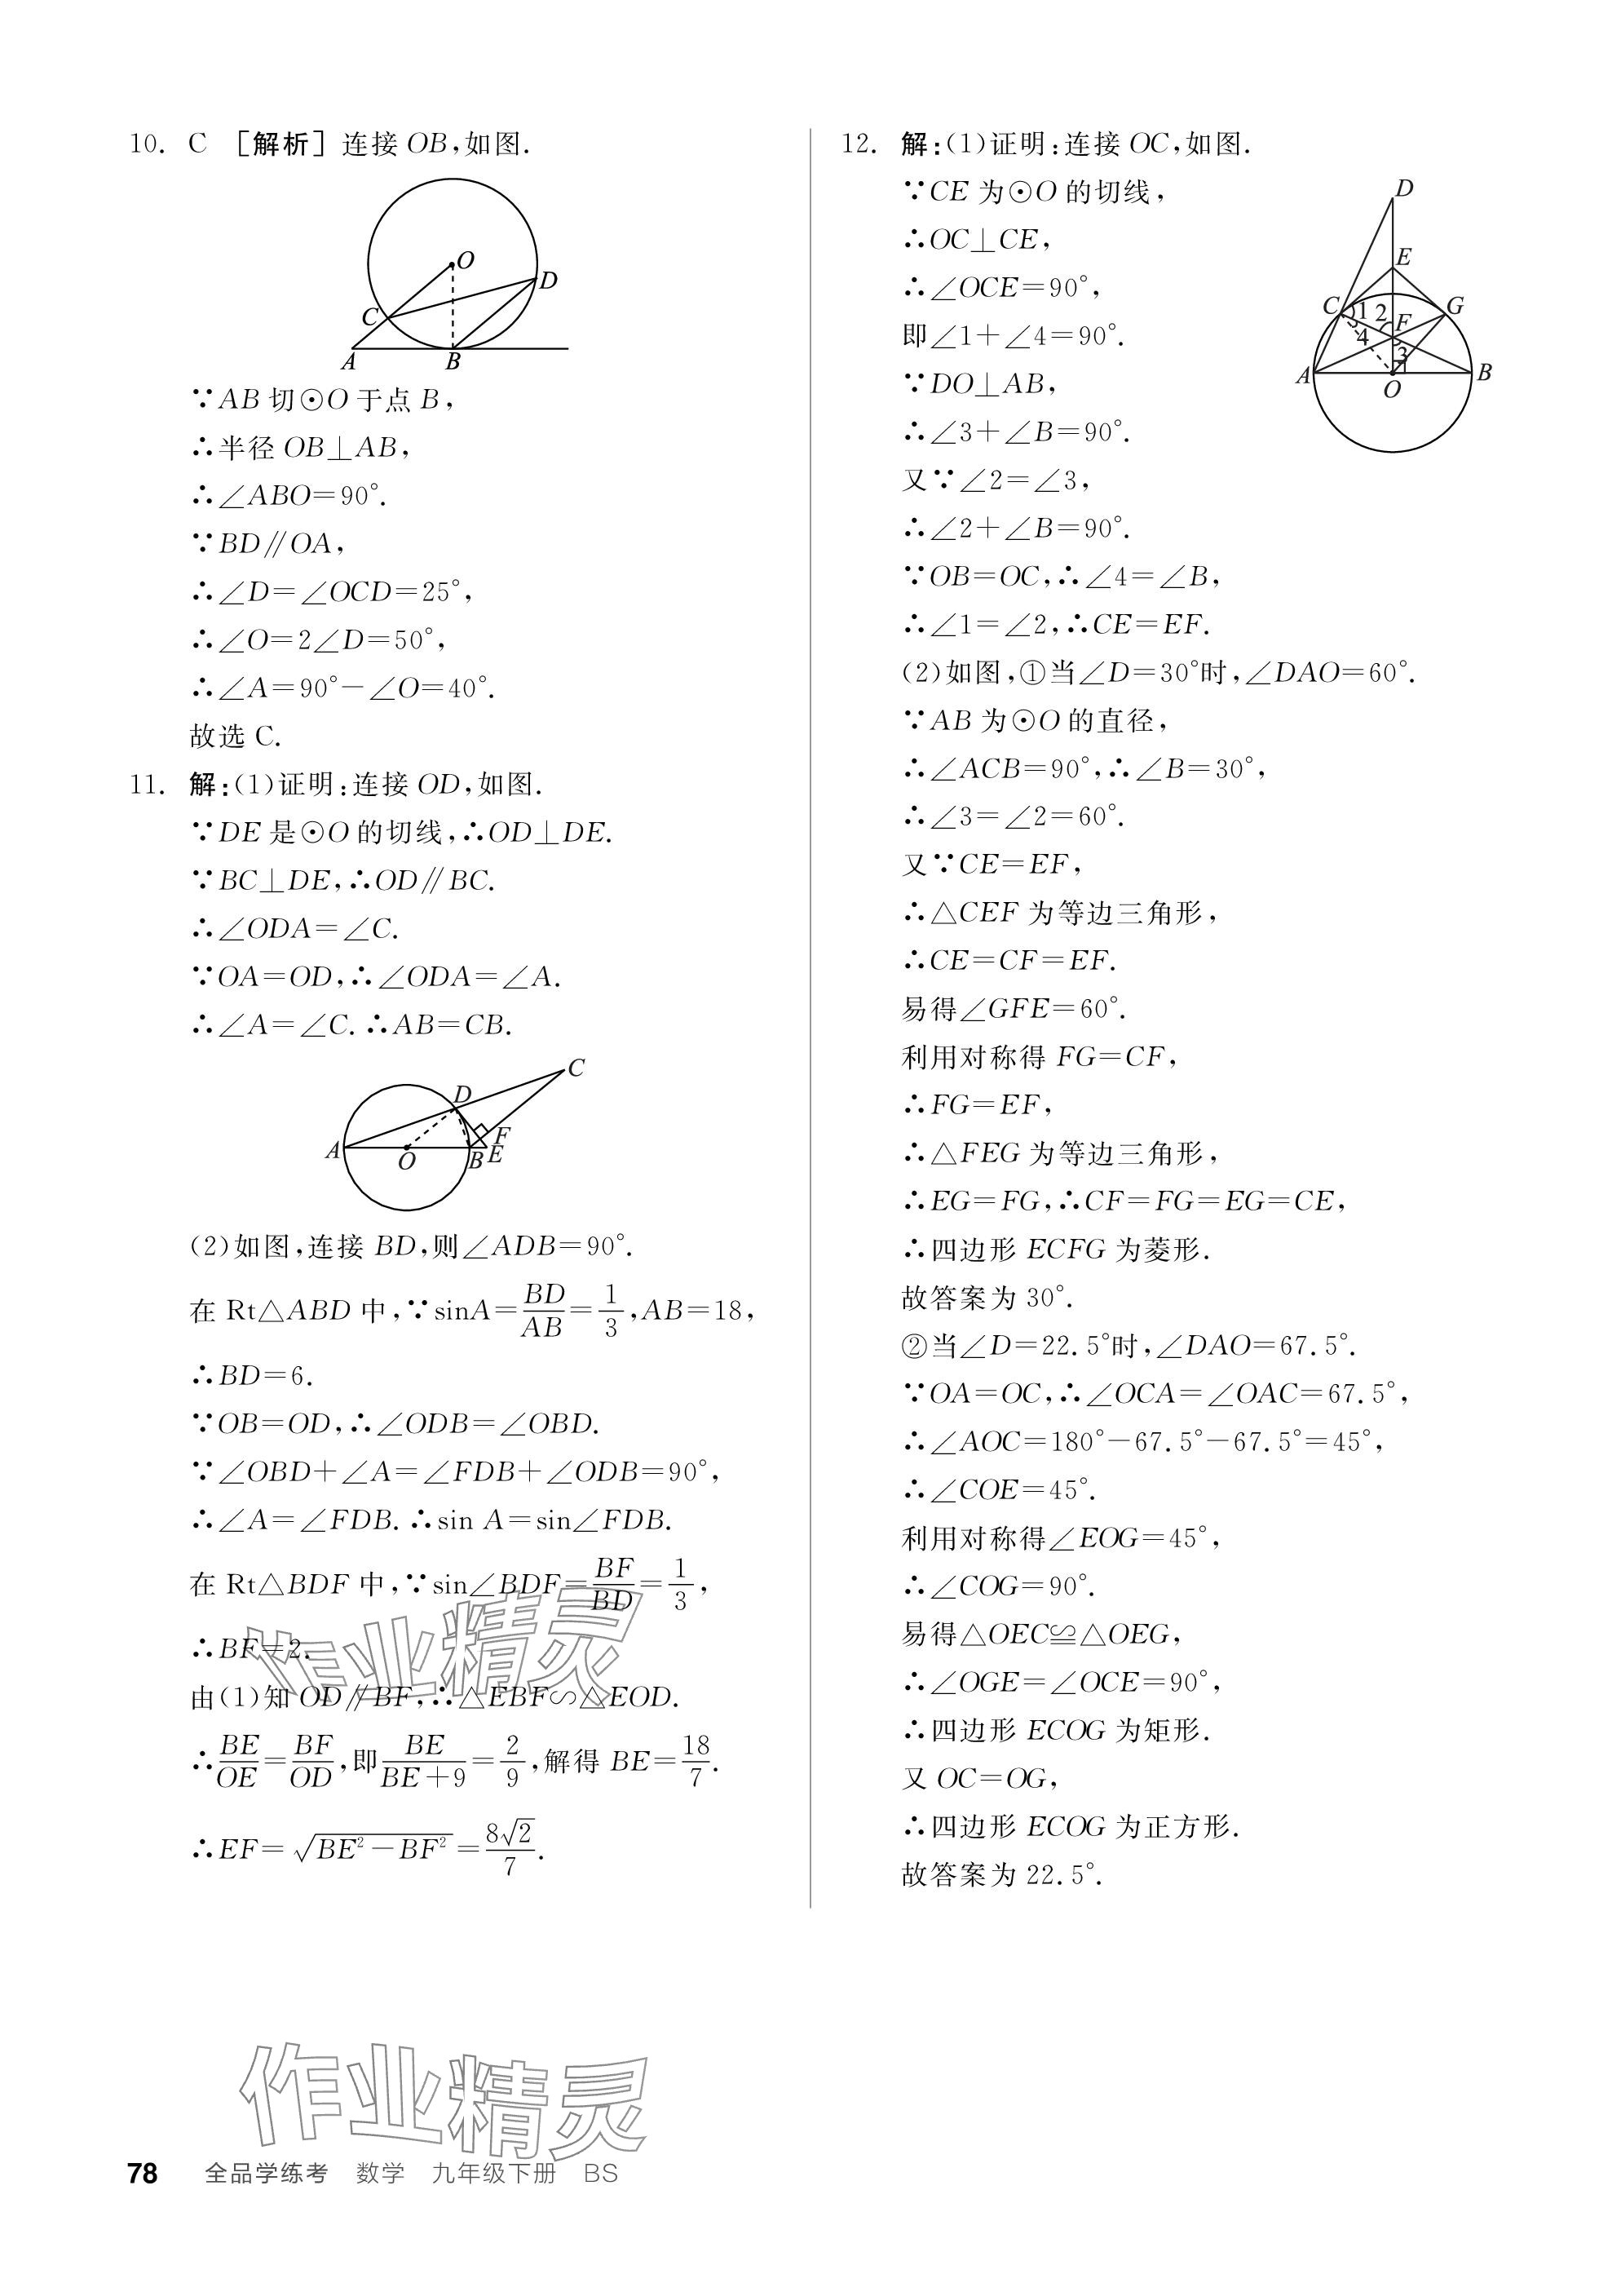 10. C [解析] 连接 OB,如图.
O
D
C
A
B
∵AB 切⊙O 于点 B,
∴半径 OB⊥AB,
∴∠ABO=90°.
∵BD∥OA,
∴∠D=∠OCD=25°,
∴∠O=2∠D=50°,
∴∠A=90°-∠O=40°.
故选 C.
11. 解:(1)证明:连接 OD,如图.
∵DE 是⊙O 的切线,∴OD⊥DE.
∵BC⊥DE,∴OD∥BC.
∴∠ODA=∠C.
∵OA=OD,∴∠ODA=∠A.
∴∠A=∠C. ∴AB=CB.
C
D
F
A
O
B
E
(2)如图,连接 BD,则∠ADB=90°.
在 Rt△ABD 中,∵sinA=BD/AB=1/3,AB=18,
∴BD=6.
∵OB=OD,∴∠ODB=∠OBD.
∵∠OBD+∠A=∠FDB+∠ODB=90°,
∴∠A=∠FDB. ∴sin A=sin∠FDB.
在 Rt△BDF 中,∵sin∠BDF=BF/BD=1/3,
∴BF=2.
由(1)知 OD∥BF,∴△EBF∽△EOD.
∴BE/OE=BF/OD,即BE/(BE+9)=2/9,解得 BE=18/7.
∴EF=√(BE²-BF²)=8√2/7.
12. 解:(1)证明:连接 OC,如图.
∵CE 为⊙O 的切线,
∴OC⊥CE,
∴∠OCE=90°,
即∠1+∠4=90°.
∵DO⊥AB,
∴∠3+∠B=90°.
又∵∠2=∠3,
∴∠2+∠B=90°.
∵OB=OC,∴∠4=∠B,
∴∠1=∠2,∴CE=EF.
D
E
C
1
2
F
G
4
3
A
O
B
(2)如图,①当∠D=30°时,∠DAO=60°.
∵AB 为⊙O 的直径,
∴∠ACB=90°,∴∠B=30°,
∴∠3=∠2=60°.
又∵CE=EF,
∴△CEF 为等边三角形,
∴CE=CF=EF.
易得∠GFE=60°.
利用对称得 FG=CF,
∴FG=EF,
∴△FEG 为等边三角形,
∴EG=FG,∴CF=FG=EG=CE,
∴四边形 ECFG 为菱形.
故答案为 30°.
②当∠D=22.5°时,∠DAO=67.5°.
∵OA=OC,∴∠OCA=∠OAC=67.5°,
∴∠AOC=180°-67.5°-67.5°=45°,
∴∠COE=45°.
利用对称得∠EOG=45°,
∴∠COG=90°.
易得△OEC≌△OEG,
∴∠OGE=∠OCE=90°,
∴四边形 ECOG 为矩形.
又 OC=OG,
∴四边形 ECOG 为正方形.
故答案为 22.5°.
作业精灵
作业精灵
78 全品学练考 数学 九年级下册 BS